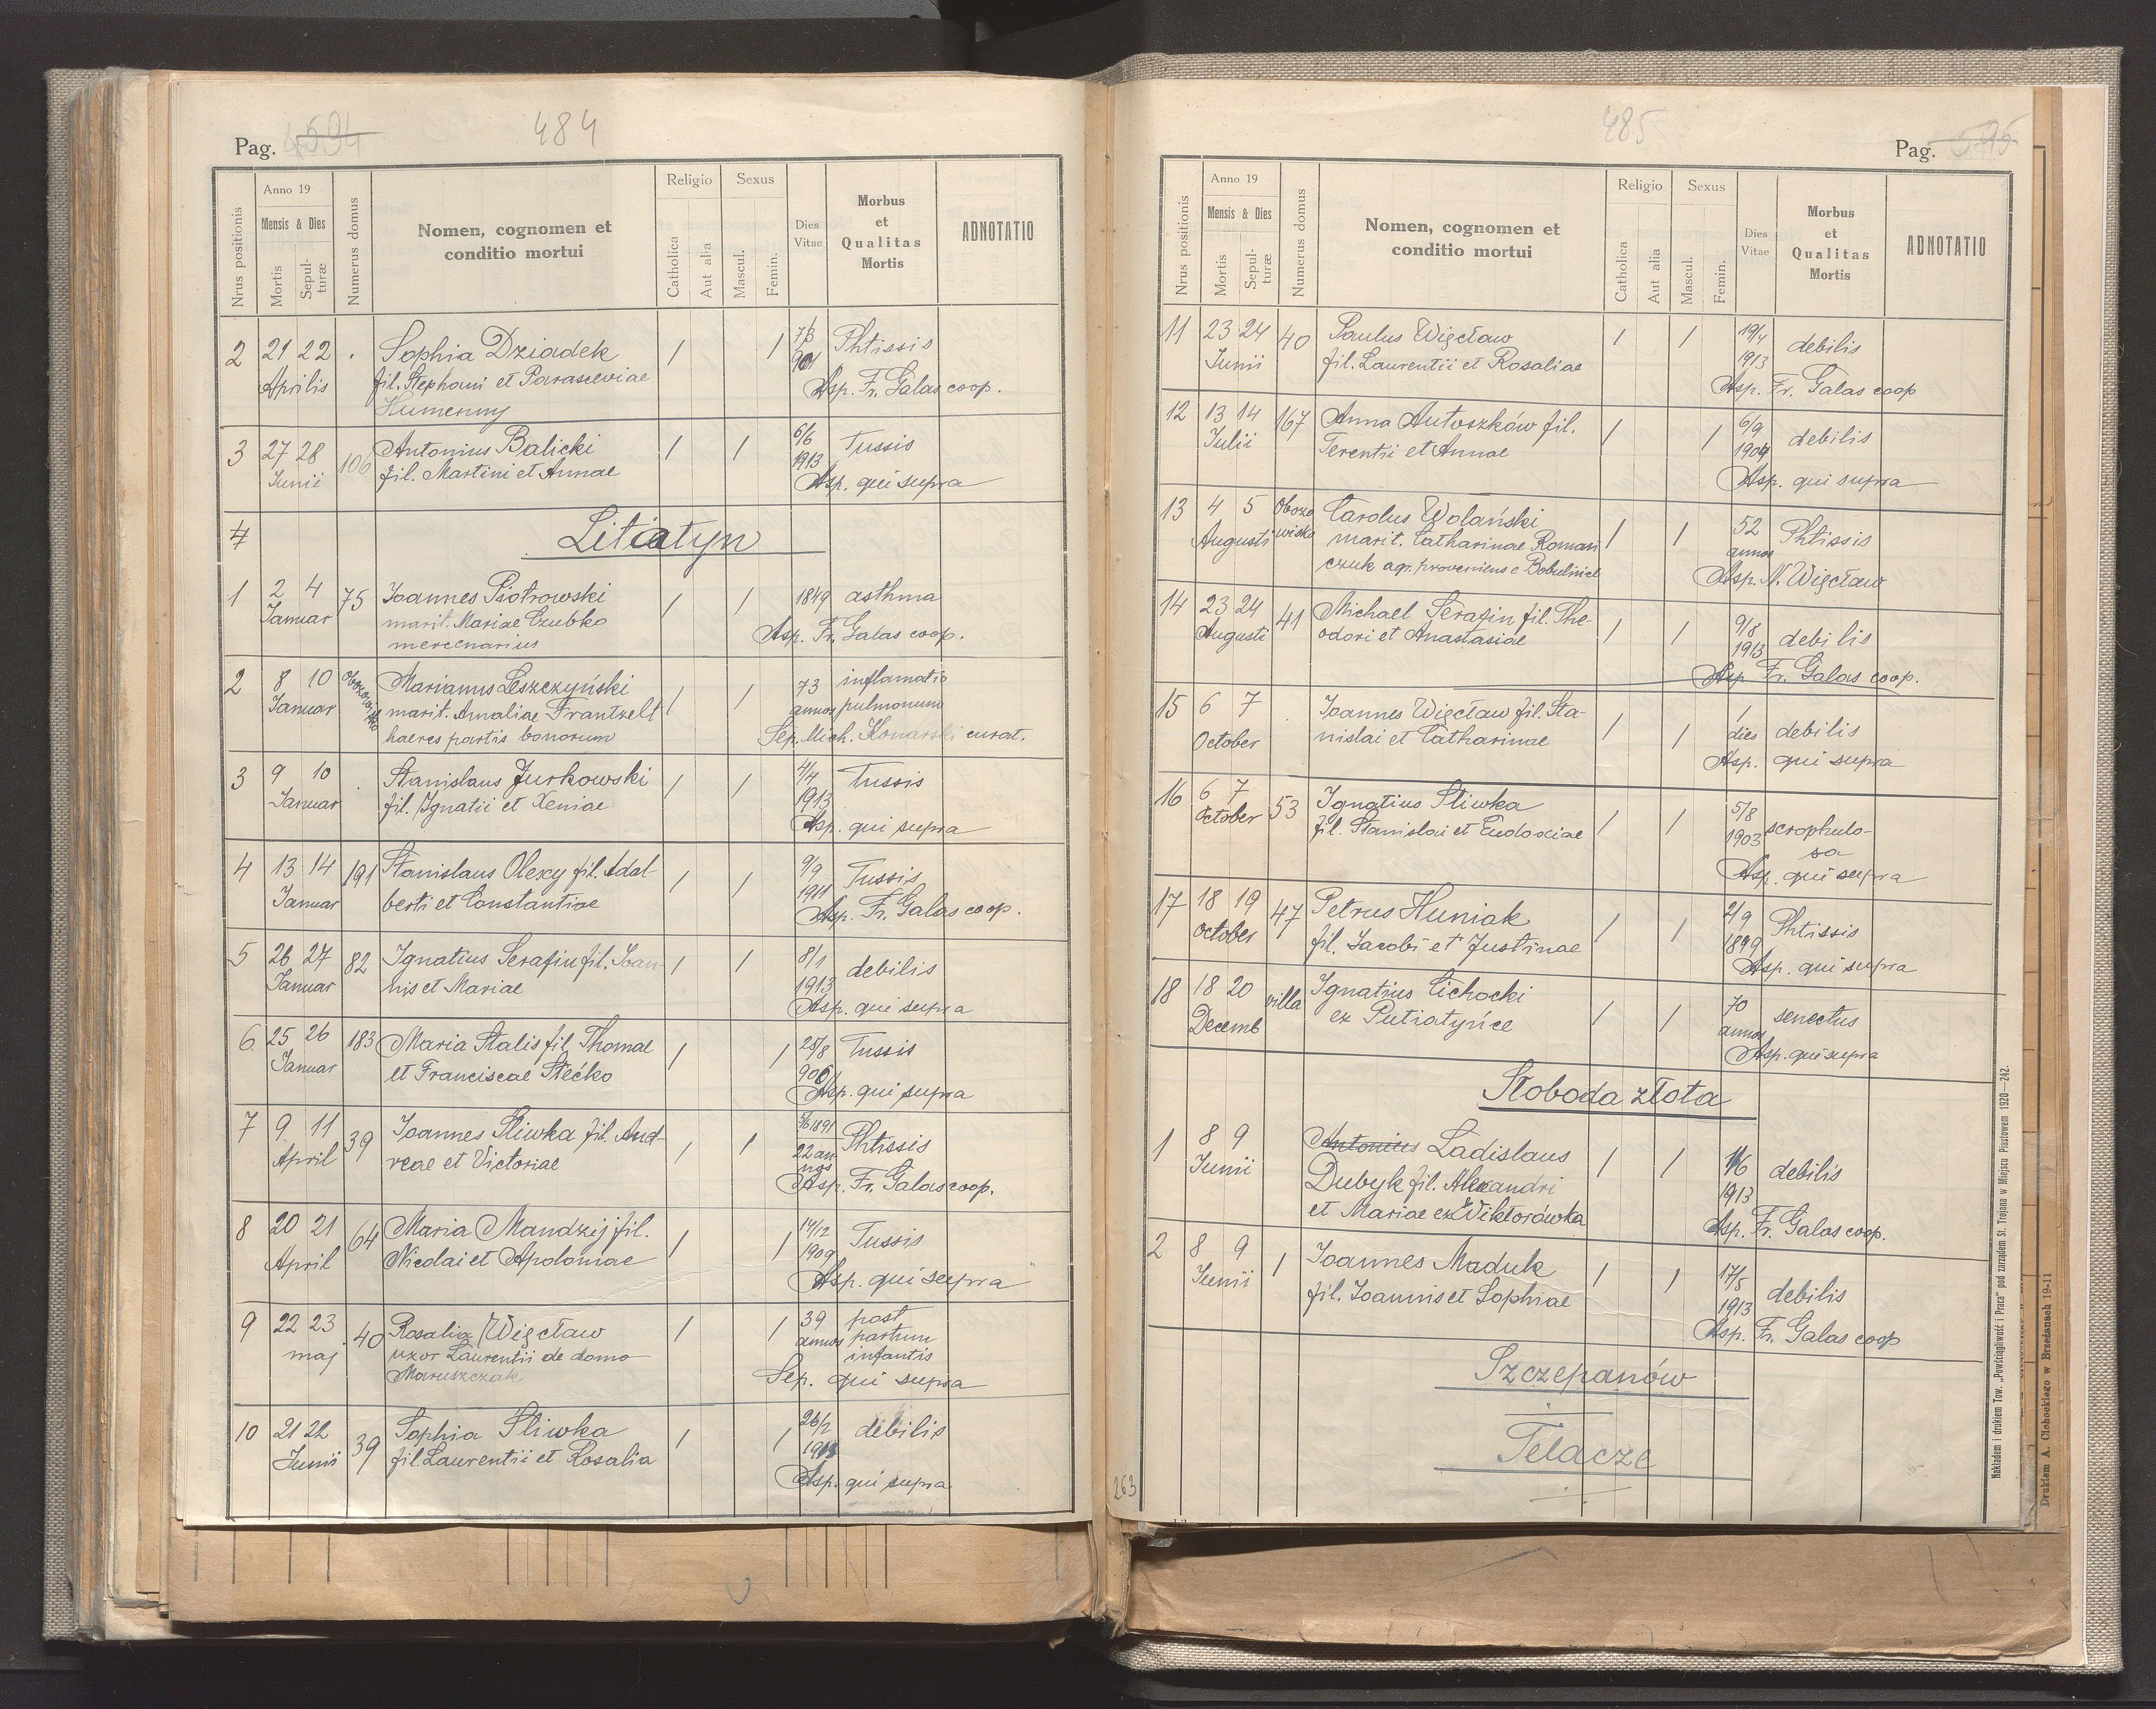 Pag. 484
Nrus positionis
Anno 19
Mensis & Dies
Mortis
Sepul-
turæ
Numerus domus
Nomen, cognomen et
conditio mortui
Religio
Catholica
Aut alia
Sexus
Mascul.
Femin.
Dies
Vitae
Morbus
et
Qualitas
Mortis
ADNOTATIO
2 21 22 . Sophia Dziadek / / 7/3 Phtissis
Aprilis fil. Stephani et Parasceviae 901
Humenny Asp. Fr. Galas coop.
3 27 28 106 Antonius Balicki / / 6/6 Tussis
Junii fil. Martini et Annae 1913
Asp. qui supra
4 Litiatyn
1 2 4 75 Joannes Piotrowski / / 1849 asthma
Januar marit. Mariae Czubko Asp. Fr. Galas coop.
mercenarius
2 8 10 Obozowisko Marianus Leszczyński / / 73 inflamatio
Januar marit. Amaliae Frantzelt annos pulmonum
haeres partis bonorum Sep. Mich. Konarski curat.
3 9 10 . Stanislaus Jurkowski / / 4/4 Tussis
Januar fil. Ignatii et Xeniae 1913
Asp. qui supra
4 13 14 191 Stanislaus Olexy fil. Adal / / 9/9 Tussis
Januar berti et Constantiae 1911
Asp. Fr. Galas coop.
5 26 27 82 Ignatius Serafin fil. Joan- / / 8/1 debilis
Januar nis et Mariae 1913
Asp. qui supra
6 25 26 183 Maria Stalis fil. Thomae / / 25/8 Tussis
Januar et Franciscae Stećko 906
Asp. qui supra
7 9 11 39 Joannes Śliwka fil. And- / / 1891 Phtissis
April reae et Victoriae 22 an
nos
Asp. Fr. Galas coop.
8 20 21 64 Maria Mandzij fil. / / 14/12 Tussis
April Nicolai et Apoloniae 1909
Asp. qui supra
9 22 23 40 Rosalia Więcław / / 39 post
maj uxor Laurentii de domo annos partum
Maruszczak infantis
Sep. qui supra
10 21 22 39 Sophia Śliwka / / 26/2 debilis
Junii fil. Laurentii et Rosalia 1913
Asp. qui supra
485 Pag.
Nrus positionis
Anno 19
Mensis & Dies
Mortis
Sepul-
turæ
Numerus domus
Nomen, cognomen et
conditio mortui
Religio
Catholica
Aut alia
Sexus
Mascul.
Femin.
Dies
Vitae
Morbus
et
Qualitas
Mortis
ADNOTATIO
11 23 24 40 Paulus Więcław / / 19/4 debilis
Junii fil. Laurentii et Rosaliae 1913
Asp. Fr. Galas coop
12 13 14 167 Anna Antoszków fil. / / 6/9 debilis
Julii Terentii et Annae 1904
Asp. qui supra
13 4 5 Obozo Carolus Wolański / / 52 Phtissis
Augusti wisko marit. Catharinae Roman annos
czuk agr. proveniens e Bobulińce Asp. N. Więcław
14 23 24 41 Michael Serafin fil. The- / / 9/8 debilis
Augusti odori et Anastasiae 1913
Asp Fr. Galas coop.
15 6 7 Joannes Więcław fil. Sta- / / 1 debilis
October nislai et Catharinae dies
Asp. qui supra
16 6 7 53 Ignatius Śliwka / / 5/8 scrophulo-
October fil. Stanislai et Eudoxiae 1903 sa
Asp. qui supra
17 18 19 47 Petrus Huniak / / 21/9 Phtissis
October fil. Jacobi et Justinae 1899
Asp. qui supra
18 18 20 villa Ignatius Cichocki / / 70 senectus
Decemb ex Putiatyńce annos
Asp. qui supra
Słoboda złota
1 8 9 Antonius Ladislaus / / debilis
Junii Dubyk fil. Alexandri 1913
et Mariae ex Wiktorówka Asp. Fr. Galas coop.
2 8 9 1 Joannes Maduk / / 17/5 debilis
Junii fil. Joannis et Sophiae 1913
Asp. Fr. Galas coop
Szczepanów
Telacze
263
Nakładem i drukiem Tow. „Powściągliwość i Praca" pod zarządem St. Trojana w Miejscu Piastowem 1920—242.
Drukiem A. Cichockiego w Brzeżanach 19-11